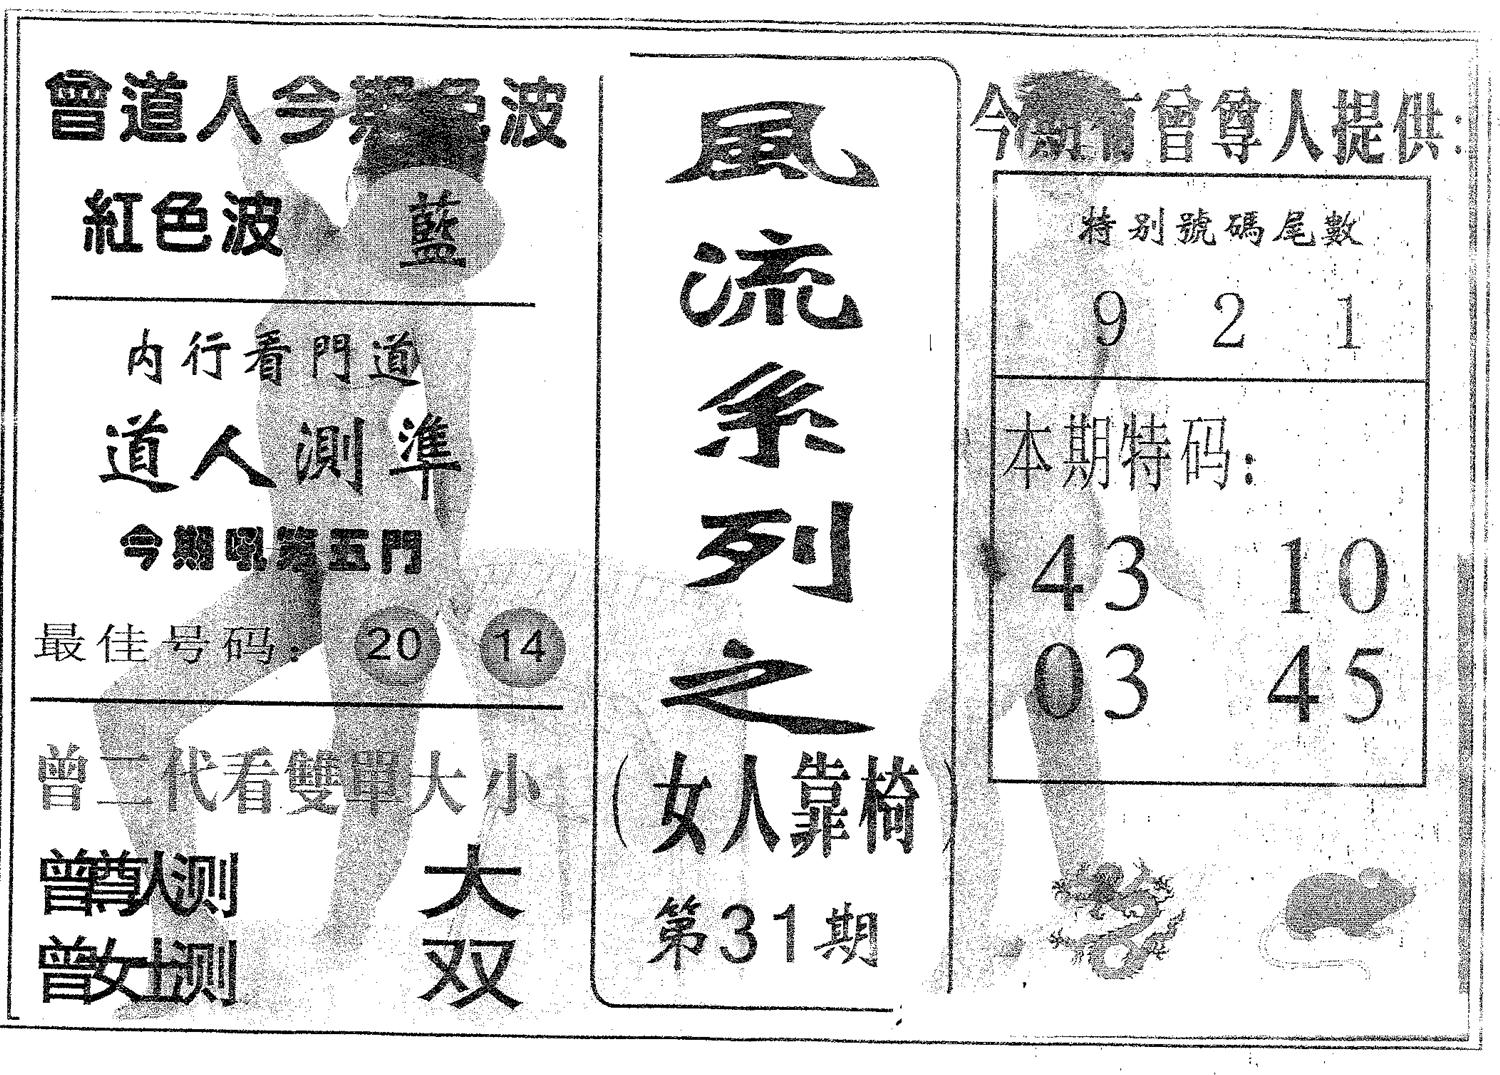 曾道人今期色波
紅色波 藍
内行看門道
道人測準
今期吼第五門
最佳号码: 20 14
曾二代看雙單大小
曾尊人测 大
曾女士测 双
風流系列之
(女人靠椅)
第31期
今期有曾尊人提供:
特别號碼尾數
9 2 1
本期特码:
43 10
03 45